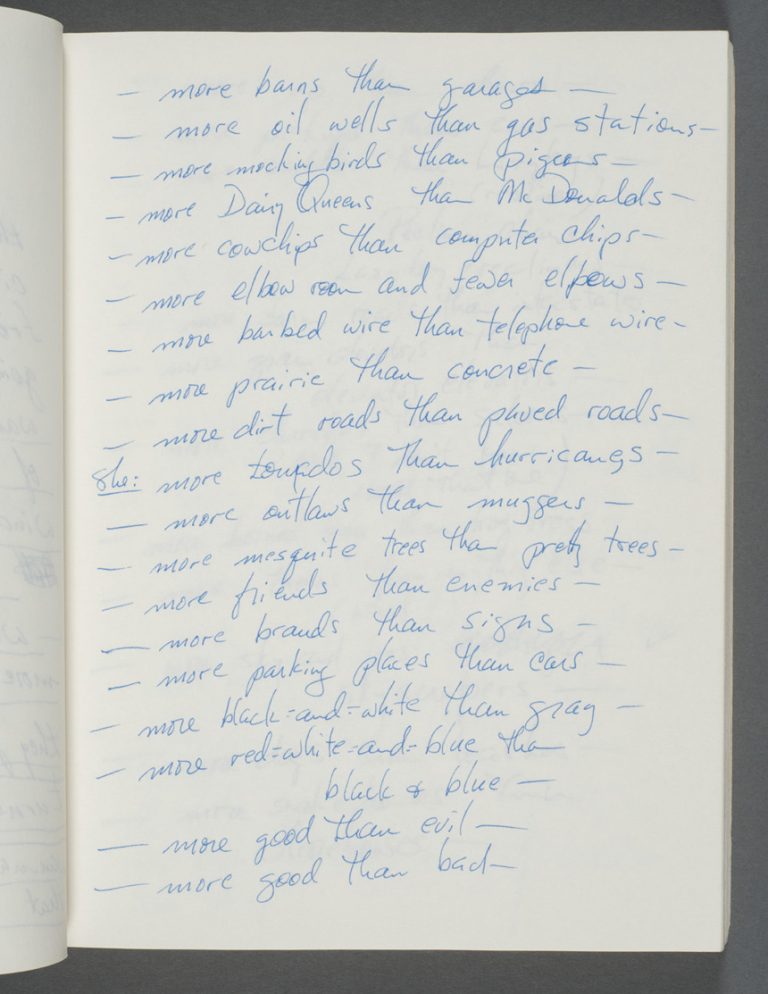 — more barns than garages —
— more oil wells than gas stations —
— more mockingbirds than pigeons —
— more Dairy Queens than McDonalds —
— more cowchips than computer chips —
— more elbow room and fewer elbows —
— more barbed wire than telephone wire —
— more prairie than concrete —
— more dirt roads than paved roads —
She: more tornados than hurricanes —
— more outlaws than muggers —
— more mesquite trees than pretty trees —
— more friends than enemies —
— more brands than signs —
— more parking places than cars —
— more black=and=white than gray —
— more red=white=and=blue than
black & blue —
— more good than evil —
— more good than bad —
of
more
they
that